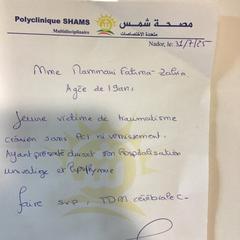 Polyclinique SHAMS
مصحة شمس
Multidisciplinaire
متعددة الاختصاصات
Nador, le: 31/7/25
Mme Mammani Fatima-Zahra
Agée de 19ans
Jeune victime de traumatisme
crânien sans PCI ni vomissement.
Ayant présenté durant son hospitalisation
un vertige et
faire svp, TDM cérébrale C-